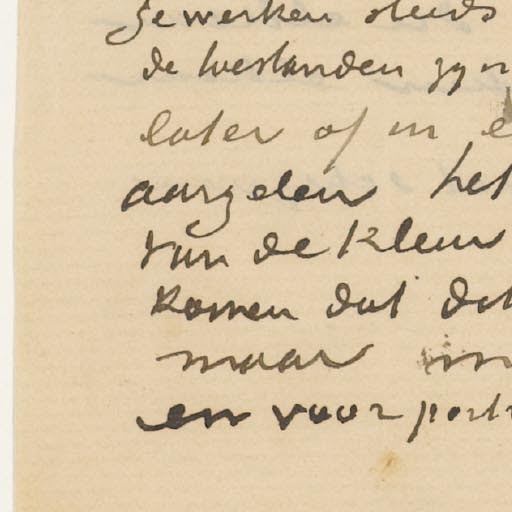 gewerken steeds
de toestanden zyn
later of in e
aarzelen het
van de kleur
komen dat dat
maar in
en voor portr